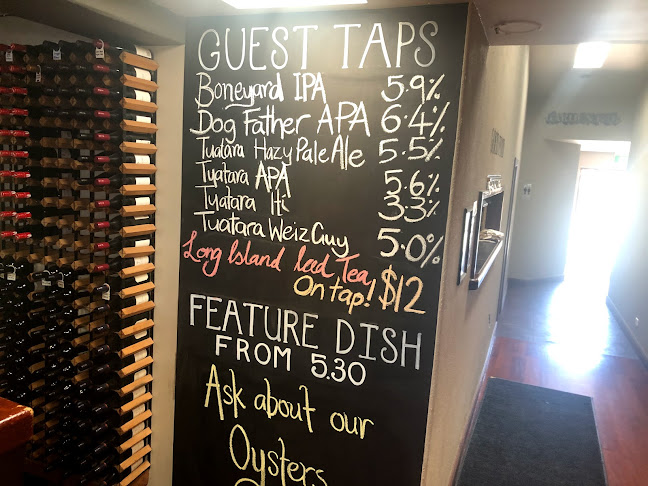 GUEST TAPS
Boneyard IPA 5.9%
Dog Father APA 6.4%
Tuatara Hazy Pale Ale 5.5%
Tuatara APA 5.6%
Tuatara Iti 3.3%
Tuatara Weiz Guy 5.0%
Long Island Iced Tea
On tap! $12
FEATURE DISH
FROM 5.30
Ask about our
Oysters